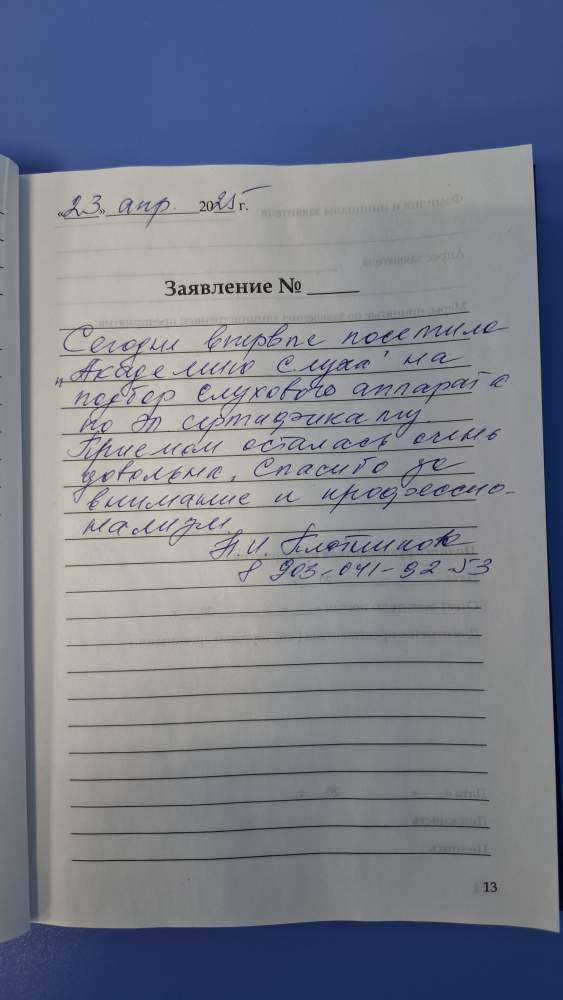 «23» апр. 2025 г.
Заявление № ____
Сегодня впервые посетила
"Академию слуха" на
подбор слухового аппарата
по эл сертификату.
Приемом осталась очень
довольна. Спасибо за
внимание и профессио-
нализм.
Плотникова
8 903-041-92-53
13